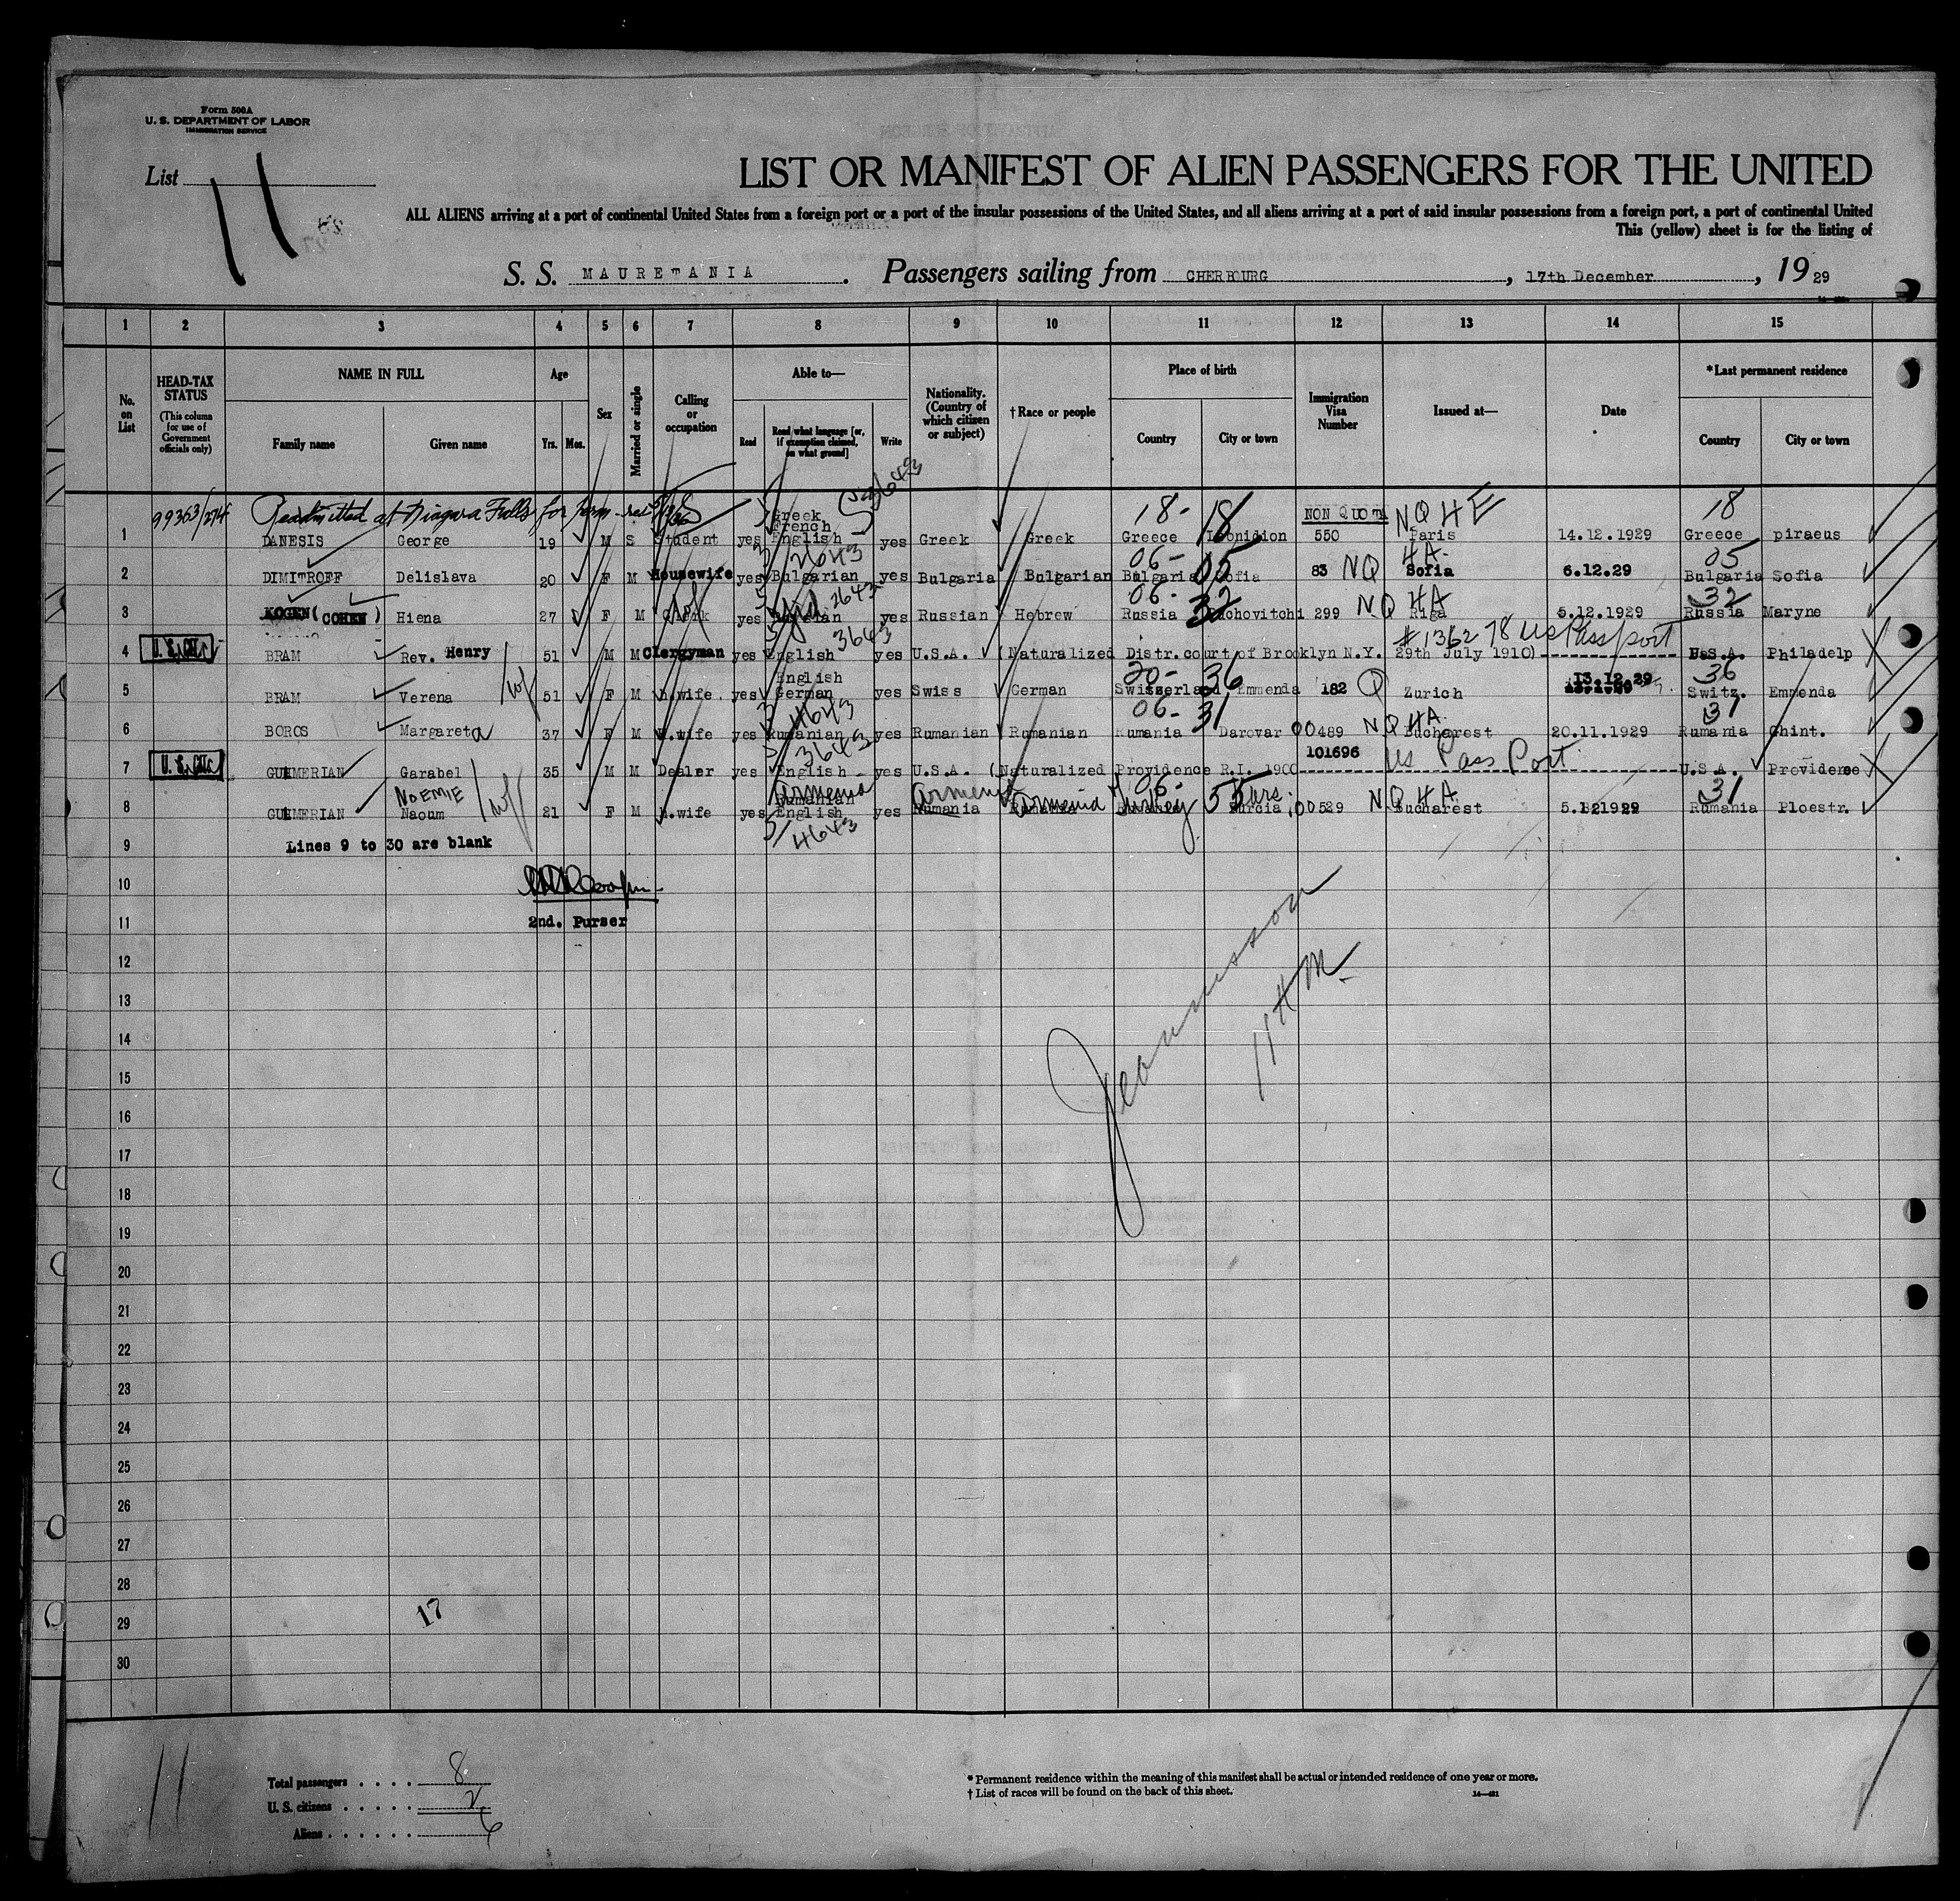 Form 500A
U. S. DEPARTMENT OF LABOR
IMMIGRATION SERVICE
List 11
LIST OR MANIFEST OF ALIEN PASSENGERS FOR THE UNITED
ALL ALIENS arriving at a port of continental United States from a foreign port or a port of the insular possessions of the United States, and all aliens arriving at a port of said insular possessions from a foreign port, a port of continental United
This (yellow) sheet is for the listing of
S. S. MAURETANIA. Passengers sailing from CHERBOURG, 17th December, 1929
1 2 3 4 5 6 7 8 9 10 11 12 13 14 15
No. on List
HEAD-TAX STATUS (This column for use of Government officials only)
NAME IN FULL Family name Given name
Age Yrs. Mos.
Sex
Married or single
Calling or occupation
Able to— Read Read what language [or, if exemption claimed, on what ground] Write
Nationality. (Country of which citizen or subject)
†Race or people
Place of birth Country City or town
Immigration Visa Number
Issued at—
Date
*Last permanent residence Country City or town
99363/274 Readmitted at Niagara Falls for perm. res 36493
18- 18 NON QUOTA NQHE 18
1 DANESIS George 19 M S Student yes Greek French English yes Greek Greek Greece Leonidion 550 Paris 14.12.1929 Greece piraeus
2643 06- 05 HA. 05
2 DIMITROFF Delislava 20 F M Housewife yes Bulgarian yes Bulgaria Bulgarian Bulgaria Sofia 83 NQ Sofia 6.12.29 Bulgaria Sofia
2643 06- 32 NQ HA 32
3 KOGEN (COHEN) Hiena 27 F M yes Russian yes Russian Hebrew Russia 299 Riga 5.12.1929 Russia Maryne
3643 #136278 US Passport
4 U.S. Cit. BRAM Rev. Henry 51 M M Clergyman yes English yes U.S.A. (Naturalized Distr.court of Brooklyn N.Y. 29th July 1910) U.S.A. Philadelp
20- 36 36
5 BRAM Verena w/f 51 F M h.wife yes English German yes Swiss German Switzerland Emmenda 182 Q Zurich 13.12.29 Switz. Emmenda
4643 06- 31 NQ HA 31
6 BOROS Margareta 37 F M h.wife yes Rumanian yes Rumanian Rumanian Rumania Darovar 00489 Bucharest 20.11.1929 Rumania Ghint.
3643 101696 US Pass Port
7 U.S. Cit. Garabel 35 M M Dealer yes English yes U.S.A. (Naturalized Providence R.I. 1900 U.S.A. Providence
NOEMIE w/f Armenia Armenia Armenia 06- Turkey 55 NQHA 31
8 Naoum 21 F M h.wife yes Rumanian English yes Rumania Rumania 00529 Bucharest 5.12.1929 Rumania Ploestr.
4643
9 Lines 9 to 30 are blank
10
11 2nd. Purser
12
13
14
15
16
17
18
19
20
21
22
23
24
25
26
27
28
29 17
30
11
Total passengers . . . . 8
U. S. citizens . . . . . 2
Aliens . . . . . . 6
* Permanent residence within the meaning of this manifest shall be actual or intended residence of one year or more.
† List of races will be found on the back of this sheet.